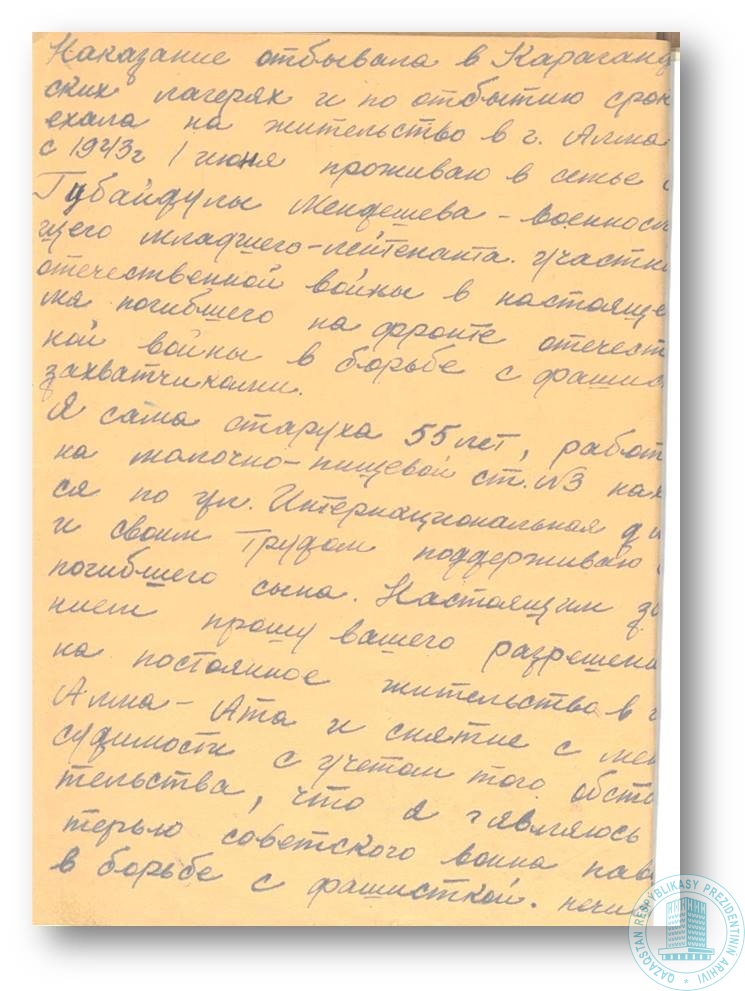 Наказание отбывала в Караганд
ских лагерях и по отбытию срок
ехала на жительство в г. Алма
с 1943 г 1 июня проживаю в семье
Губайдулы Мендешева - военносл
щего младшего-лейтенанта. участни
отечественной войны в настояще
мя погибшего на фронте отечест
ной войны в борьбе с фашис
захватчиками.
Я сама старуха 55 лет, работ
на молочно-пищевой ст. №3 нах
ся по ул. Интернациональная д
и своим трудом поддерживаю
погибшего сына. Настоящим за
нием прошу вашего разрешени
на постоянное жительство в г
Алма-Ата и снятие с мен
судимости с учетом того обсто
тельства, что я являюсь
терью советского воина пав
в борьбе с фашисткой. нечи
QAZAQSTAN RESPÝBLIKASY PREZIDENTINIŃ ARHIVI